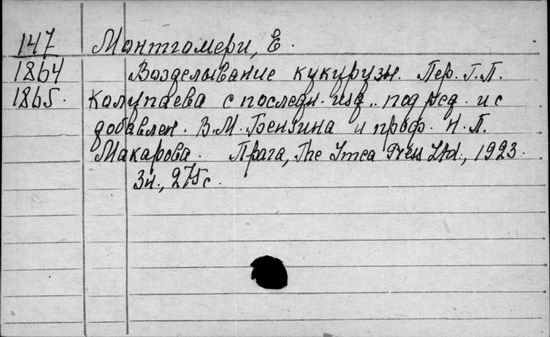 147 Монтгомери, Е.
1864 Возделывание кукурузы. Пер. Г.П.
1865. Колупаева с последн. изд. под ред. и с
добавлен. В.М. Бензина и проф. Н.П.
Макарова. Прага, The Ymca Press Ltd., 1923.
Зн., 275 с.